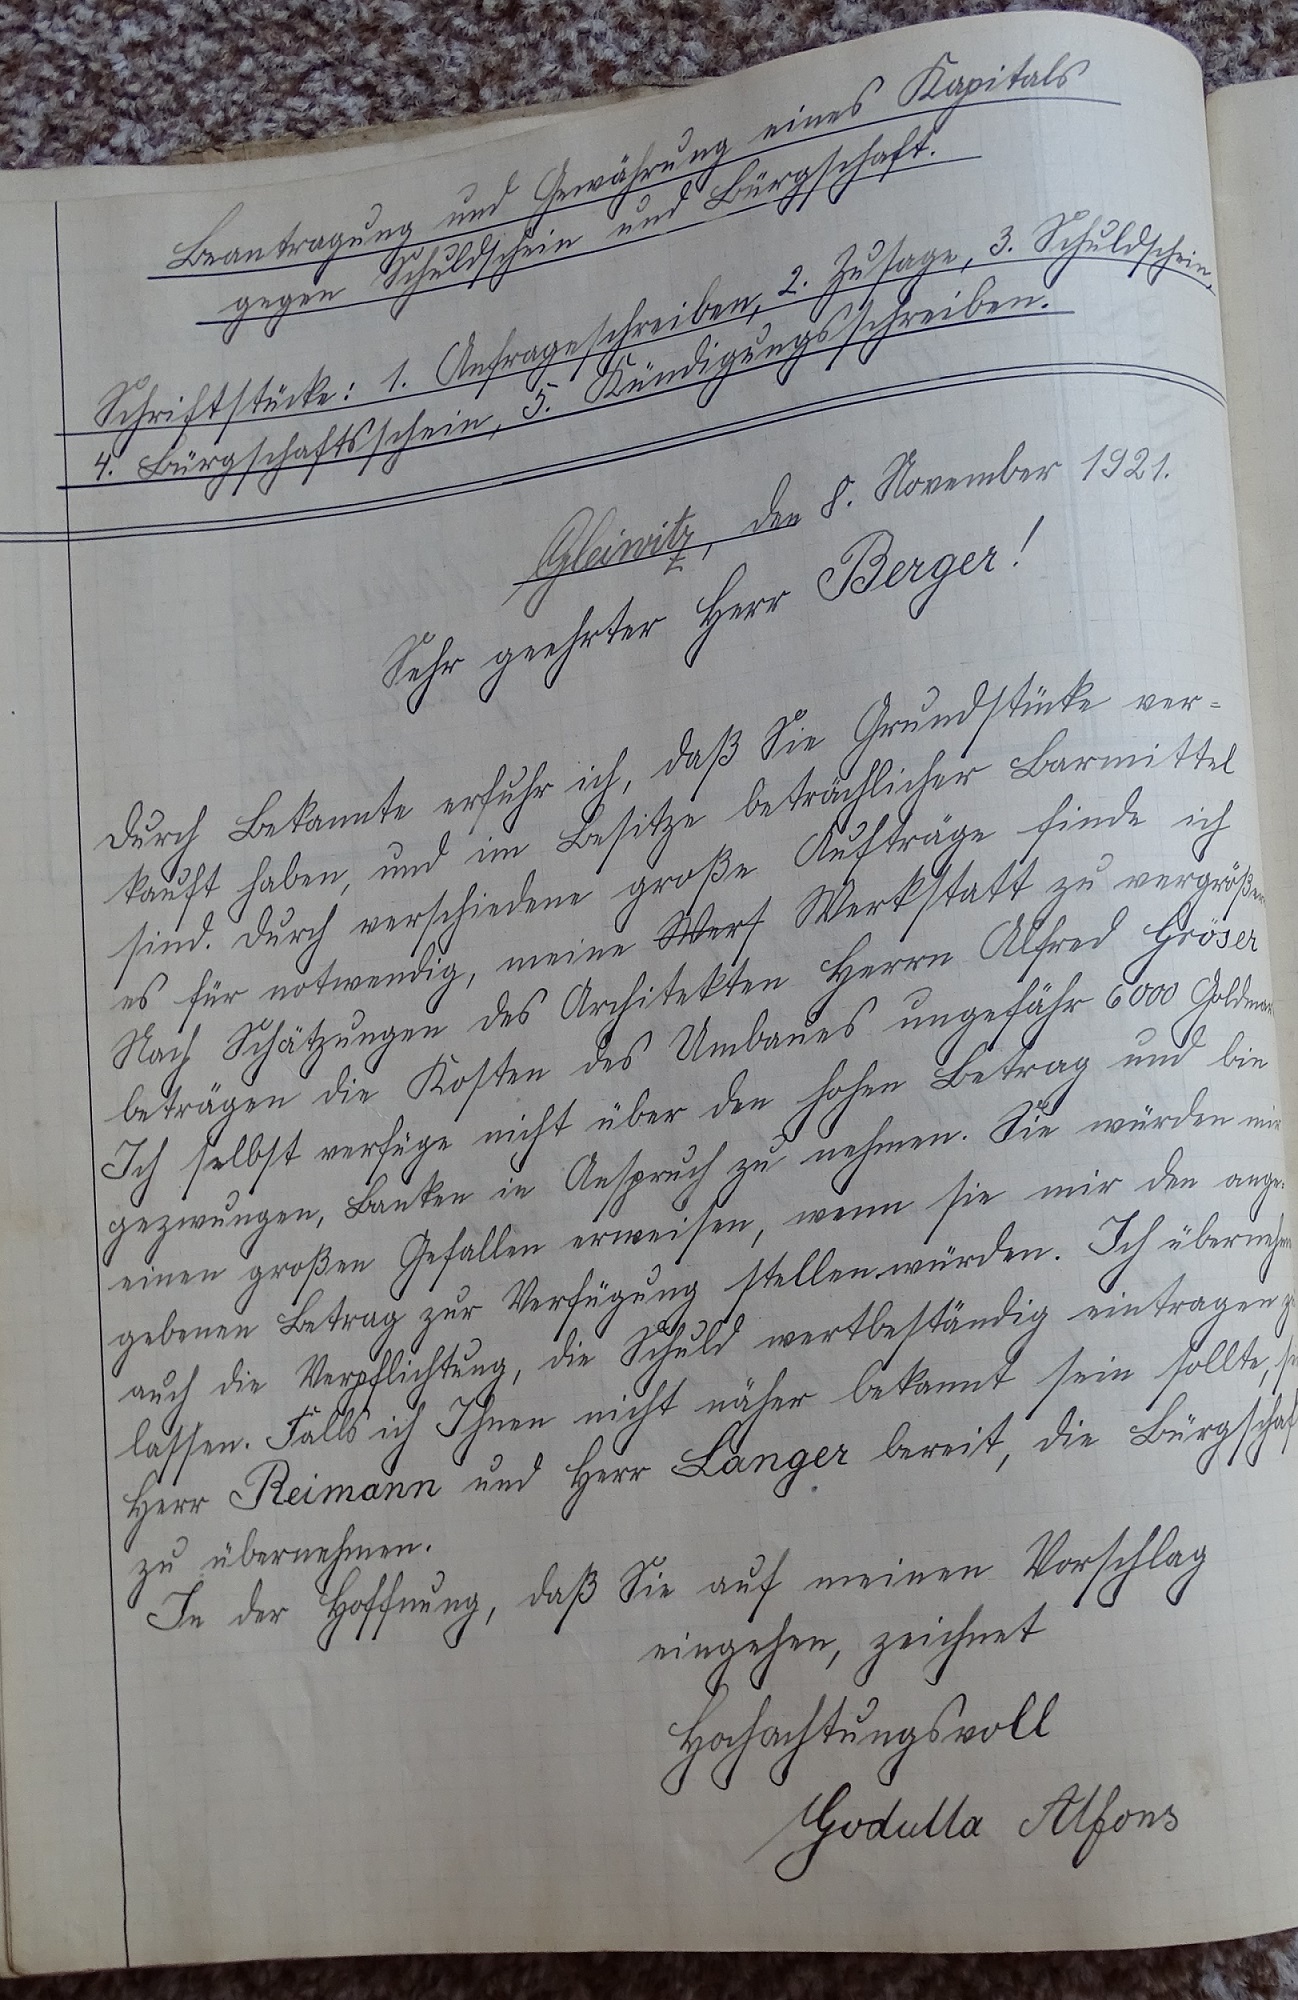 Beantragung und Gewährung eines Kapitals
gegen Schuldschein und Bürgschaft.
Schriftstücke: 1. Anfrageschreiben, 2. Zusage, 3. Schuldschein,
4. Bürgschaftsschein, 5. Kündigungsschreiben.
Gleiwitz, den 8. November 1921.
Sehr geehrter Herr Berger!
Durch Bekannte erfuhr ich, daß Sie Grundstücke ver=
kauft haben, und im Besitze beträchlicher Barmittel
sind. Durch verschiedene große Aufträge finde ich
es für notwendig, meine Werf Werkstatt zu vergrößern
Nach Schätzungen des Architekten Herrn Alfred Gröser
beträgen die Kosten des Umbaues ungefähr 6000 Goldmar
Ich selbst verfüge nicht über den hohen Betrag und bin
gezwungen, Banken in Anspruch zu nehmen. Sie würden mir
einen großen Gefallen erweisen, wenn sie mir den ange=
gebenen Betrag zur Verfügung stellen würden. Ich übernehm
auch die Verpflichtung, die Schuld wertbeständig eintragen z
lassen. Falls ich Ihnen nicht näher bekannt sein sollte, s
Herr Reimann und Herr Langer bereit, die Bürgschaf
zu übernehmen.
In der Hoffnung, daß Sie auf meinen Vorschlag
eingehen, zeichnet
Hochachtungsvoll
Godulla Alfons